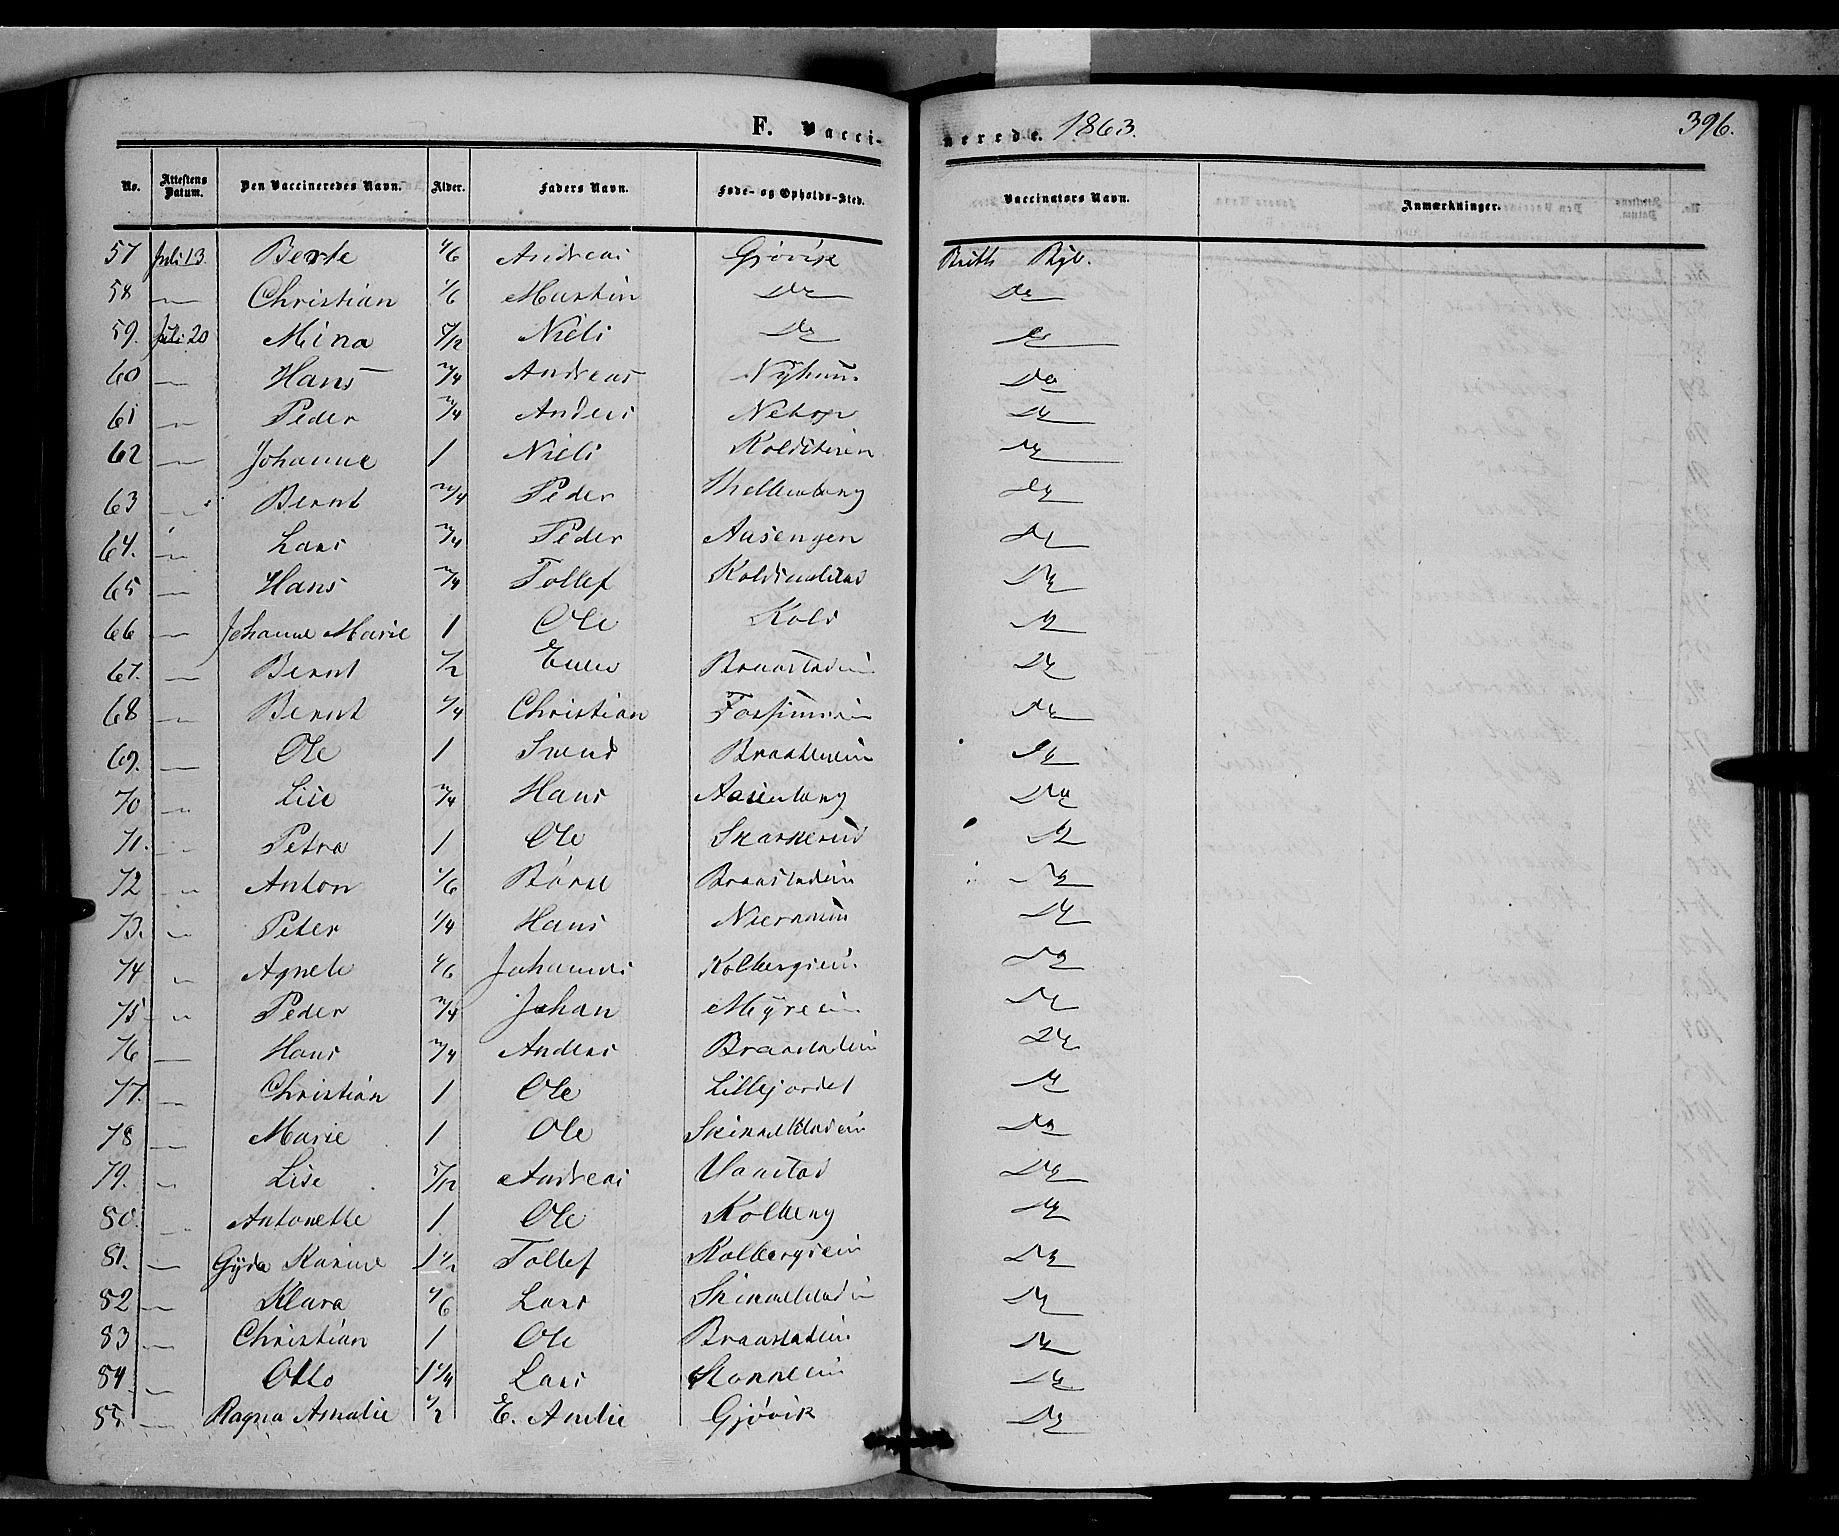 F. Vacci-nerede. 1863. 396.
No. Attestens Datum. Den Vaccineredes Navn. Alder. Faders Navn. Føde- og Opholds-Sted. Vaccinators Navn. Anmærkninger.
57 Juli 13 Berte 1/6 Andreas Gjøvik
58 — Christian 1/6 Martin Do Do
59. Juli 20 Mina 5/12 Niels Do Do
60 — Hans 3/4 Andreas Nÿhuus Do
61 — Peder 3/4 Anders Do
62 — Johanne 1 Niels Do
63 — Bernt 3/4 Peder Do
64. — Lars 3/4 Peder Aasengen Do
65 — Hans 3/4 Tollef Do
66 — Johanne Marie 1 Ole Do
67. — Bernt 1/2 Even Braastadein Do
68 — Bernt 1/4 Christian Do
69. — Ole 1 Svend Do
70 — Lise 3/4 Hans Do
71. — Petra 1 Ole Skarkerud Do
72 — Anton 1/6 Børre Braastadein Do
73. — Peter 1/4 Hans Do
74 — Agnete 1/6 Johannes Kolbergsein Do
75 — Peder 3/4 Johan Mÿrein Do
76 — Hans 3/4 Anders Braastadein Do
77. — Christian 1 Ole Lillejordet Do
78 — Marie 1 Ole Do
79. — Lise 5/12 Andreas Do
80. — Antonette 1 Ole Kolberg Do
81. — Gÿda Karine 1 1/2 Tollef Kolbergsein Do
82 — Klara 1/6 Lars Do
83 — Christian 1 Ole Braastadein Do
84 — Otto 1 1/4 Lars Do
85. — Ragna Amalie 1/2 E. Gjøvik Do